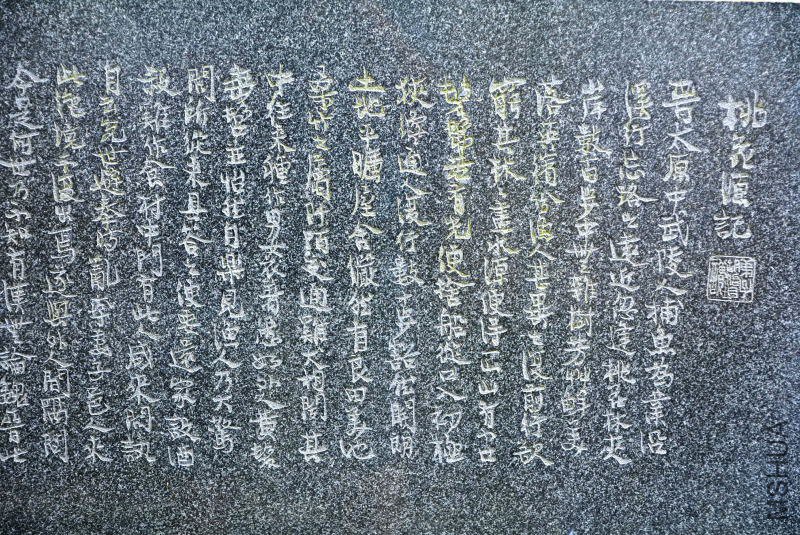 桃花源記
晉太原中武陵人捕魚為業沿
溪行忘路之遠近忽逢桃花林夾
岸數百步中無雜樹芳花鮮美
落英繽紛漁人甚異之復前行欲
窮其林林盡水源便得一山有小口
髣髴若有光便舍船從口入初極
狹纔通人復行數十步豁然開朗
土地平曠屋舍儼然有良田美池
桑竹之屬阡陌交通雞犬相聞其
中往來種作男女衣著悉如外人黃髮
垂髫並怡然自樂見漁人乃大驚
問所從來具答之便要還家設酒
殺雞作食村中聞有此人咸來問訊
自云先世避秦時亂率妻子邑人來
此絕境不復出焉遂與外人間隔問
今是何世乃不知有漢無論魏晉
NISHUA